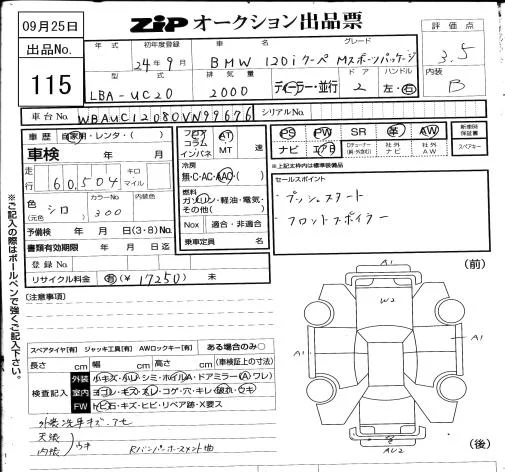 09月25日
ZIP オークション出品票
出品No.
115
年式
初年度登録
24年9月
車名
グレード
BMW 120i クーペ Mスポーツパッケージ
評価点
3.5
型式
LBA-UC20
排気量
2000
ディーラー・並行
ドア
2
ハンドル
左・右
内装
B
車台No.
WBAUC12080VN99676
シリアルNo.
車歴 自家用・レンタ・( )
車検 年 月
走行 60,504 キロ マイル
色(元色) シロ
カラーNo 300
内装色
予備検 年 月 日(3・8)No.
書類有効期限 年 月 日迄
登録No.
リサイクル料金 有(¥ 17250) 未
フロア コラム インパネ
AT MT 速
冷房
無・C・AC・AAC・( )
燃料
ガソリン・軽油・電気・その他( )
Nox 適合・非適合
乗車定員 名
PS PW SR 革 AW
ナビ エアB 社外ナビ 社外AW
新車時保証書
スペアキー
※上記太枠内は標準装備品
セールスポイント
プッシュスタート
フロントスポイラー
(注意事項)
※ご記入の際はボールペンで強くご記入下さい。
スペアタイヤ[有] ジャッキ工具[有] AWロックキー[有] ある場合のみ○
長さ cm 幅 cm 高さ cm (車検証上の寸法)
検査記入
外装 小キズ・小凹・シミ・ホイルA・ドアミラー(A)ワレ)
室内 ヨゴレ・キズ・スレ・コゲ・穴・キレ・破れ・ウキ
FW トビ石・キズ・ヒビ・リペア跡・X要ス
天張
内張 ウキ
(前)
A1
W2
A1
A1
AU2
(後)